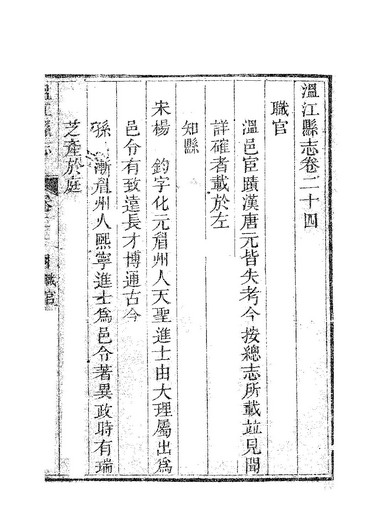 溫江縣志卷二十四
職官
溫邑宦蹟漢唐元皆失考今按總志所載並見聞
詳確者載於左
知縣
宋楊 鈞字化元眉州人天聖進士由大理屬出為
邑令有致遠長才博通古今
孫 漸眉州人熙寧進士為邑令著異政時有瑞
芝產於庭
溫江縣志 卷二十四 職官